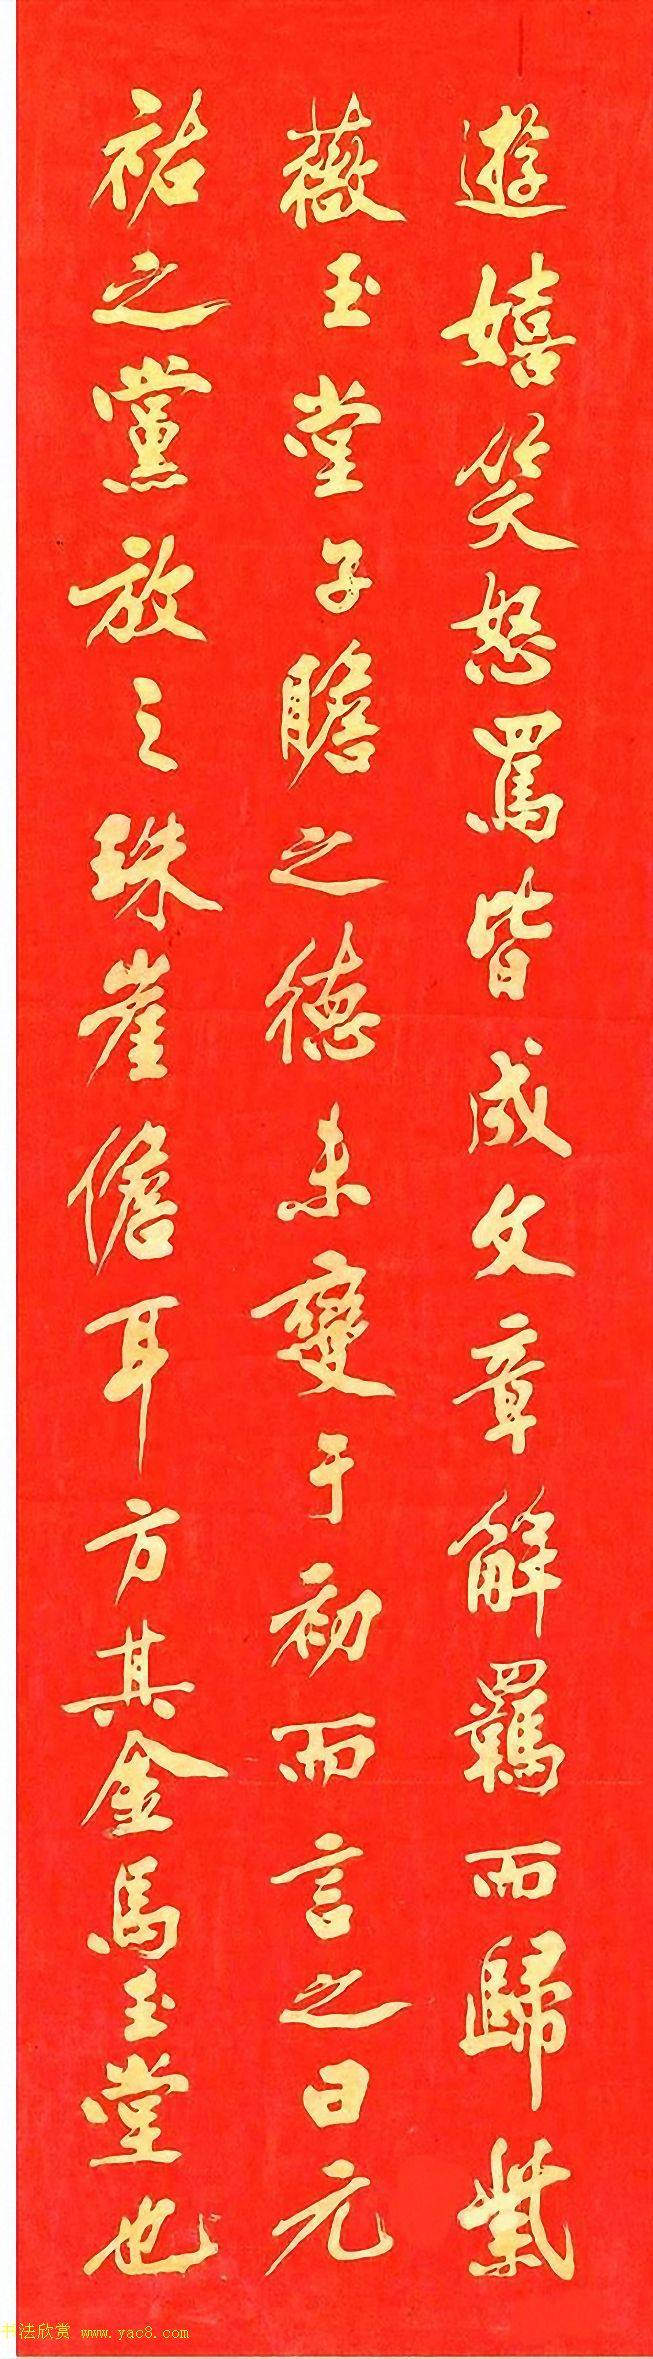 遊嬉笑怒罵皆成文章解羈而歸紫
薇玉堂子瞻之德未變于初而言之曰元
祐之黨放之珠崖儋耳方其金馬玉堂也
书法欣赏 www.yac8.com